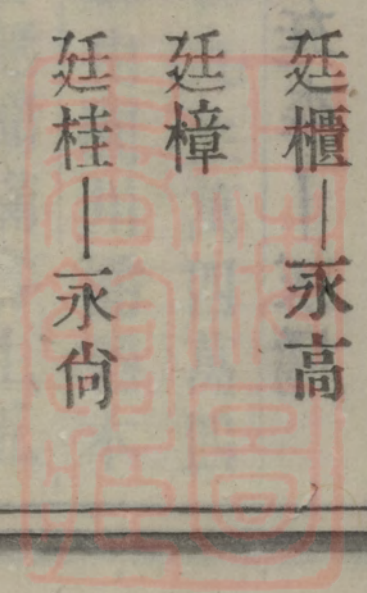 廷櫃—永高
廷樟
廷桂—永尙